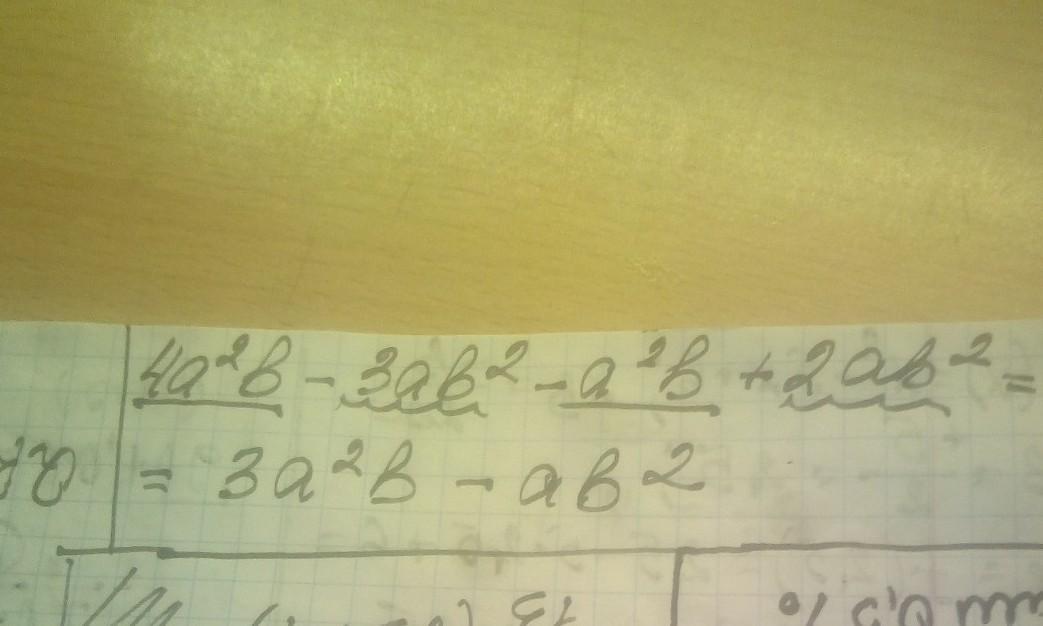 4a²b - 3ab² - a²b + 2ab² =
= 3a²b - ab²